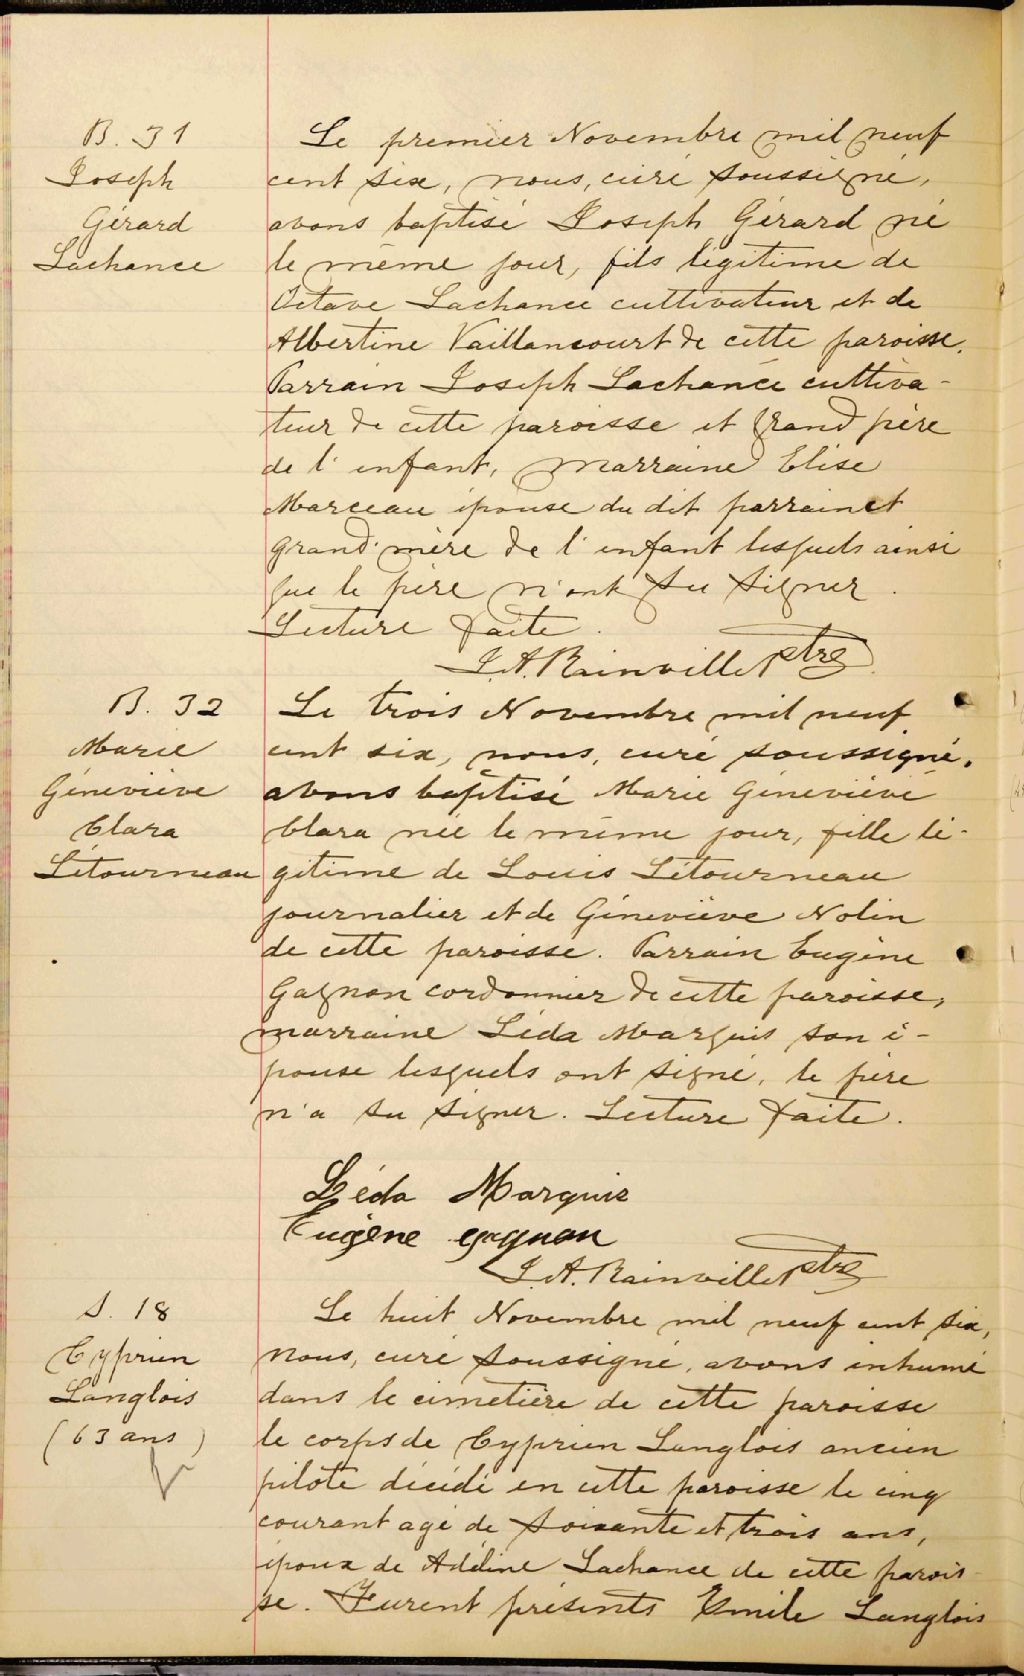 B. 31
Joseph
Gérard
Lachance
Le premier Novembre mil neuf
cent six, nous, curé soussigné,
avons baptisé Joseph Gérard né
le même jour, fils légitime de
Octave Lachance cultivateur et de
Albertine Vaillancourt de cette paroisse.
Parrain Joseph Lachance cultiva-
teur de cette paroisse et grand père
de l'enfant, marraine Elise
Marceau épouse du dit parrain et
grand'mère de l'enfant lesquels ainsi
que le père n'ont su signer.
Lecture faite.
J. A. Rainville Ptre
B. 32
Marie
Géneviève
Clara
Létourneau
Le trois Novembre mil neuf
cent six, nous, curé soussigné,
avons baptisé Marie Géneviève
Clara née le même jour, fille lé-
gitime de Louis Létourneau
journalier et de Géneviève Nolin
de cette paroisse. Parrain Eugène
Gagnon cordonnier de cette paroisse,
marraine Léda Marquis son é-
pouse lesquels ont signé, le père
n'a su signer. Lecture faite.
Léda Marquis
Eugène gagnon
J. A. Rainville Ptre
S. 18
Cyprien
Langlois
(63 ans)
Le huit Novembre mil neuf cent six,
nous, curé soussigné, avons inhumé
dans le cimetière de cette paroisse
le corps de Cyprien Langlois ancien
pilote décédé en cette paroisse le cinq
courant agé de soixante et trois ans,
époux de Adéline Lachance de cette parois-
se. Furent présents Emile Langlois